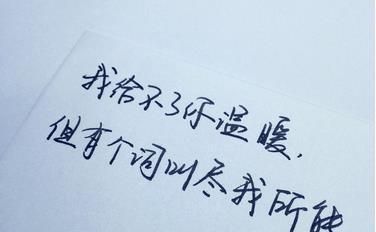 我给不了你温暖，
但有个词叫尽我所能